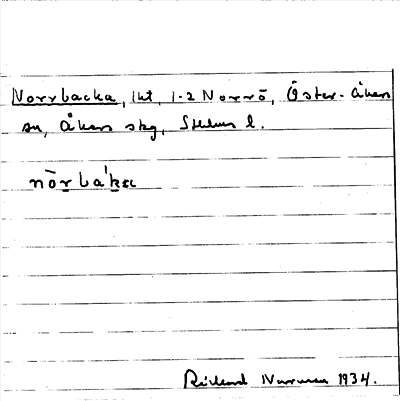 Norrbacka, lht, 1-2 Norrö, Öster-Åkers
sn, Åkers skg, Sthlms l.
nōrbàka
Rickard 1934.